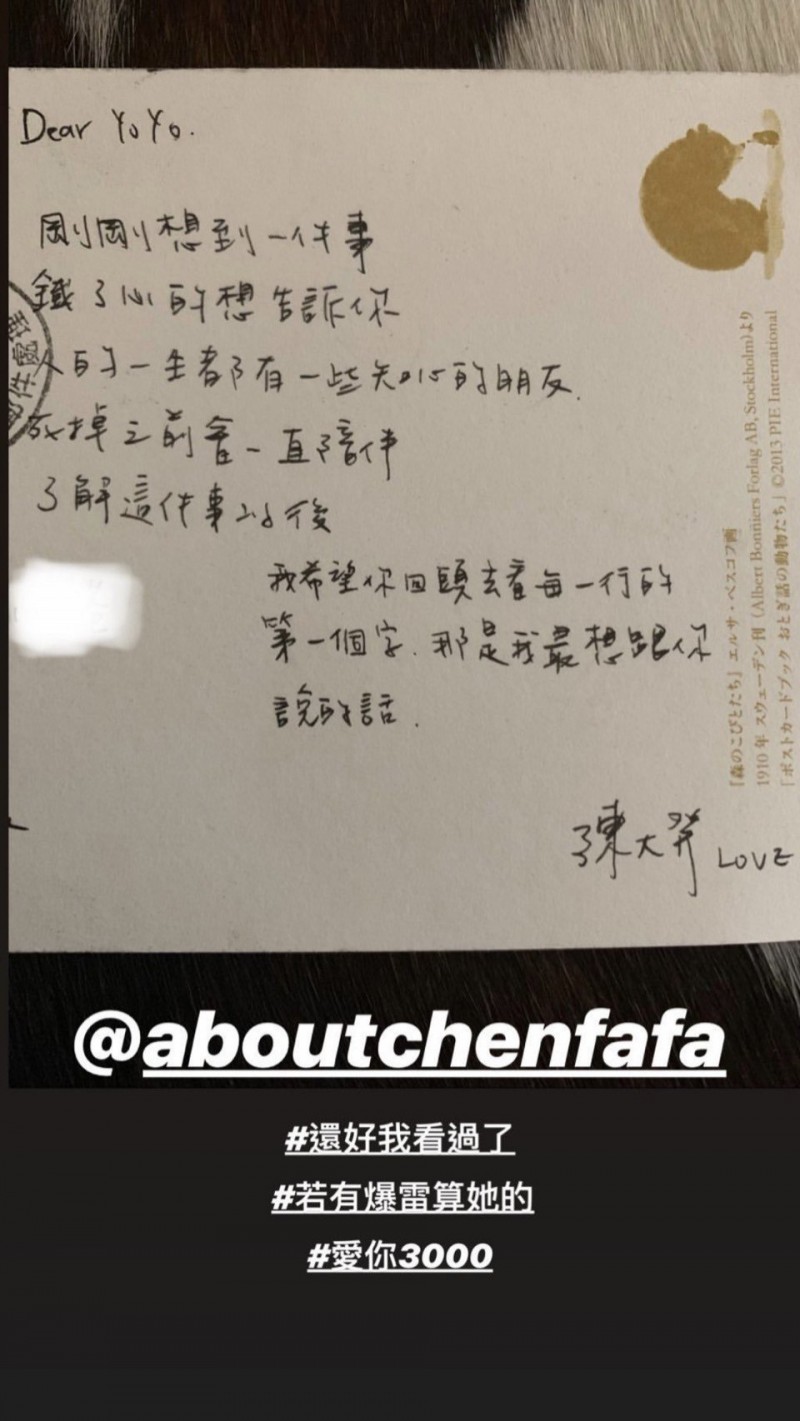 Dear YoYo.
剛剛想到一件事
鐵了心的想告訴你
人的一生都有一些知心的朋友.
死掉之前會一直陪伴
了解這件事以後
我希望你回頭去看每一行的
第一個字.那是我最想跟你
說的話.
陳大發 LOVE
件處理
『森のこびとたち』エルサ・ベスコフ画
1910年 スウェーデン刊 (Albert Bonniers Forlag AB, Stockholm)より
「ポストカードブック おとぎ話の動物たち」©2013 PIE International
@aboutchenfafa
#還好我看過了
#若有爆雷算她的
#愛你3000